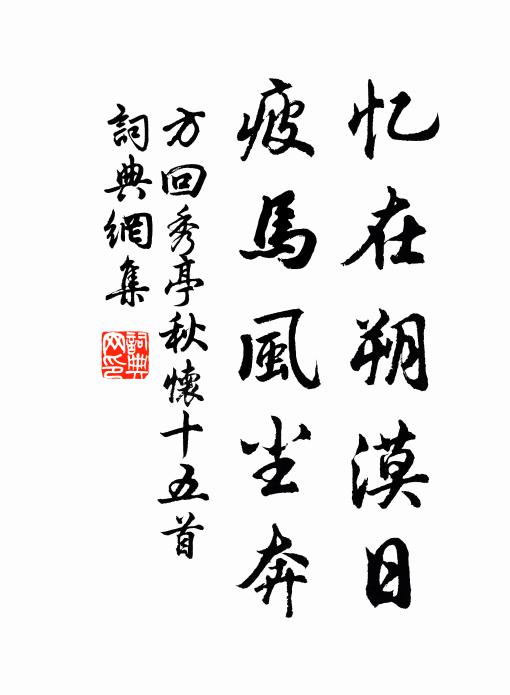 忆在朔漠日
瘦馬風尘奔
方回秀亭秋懷十五首
詞典網集
詞典网印